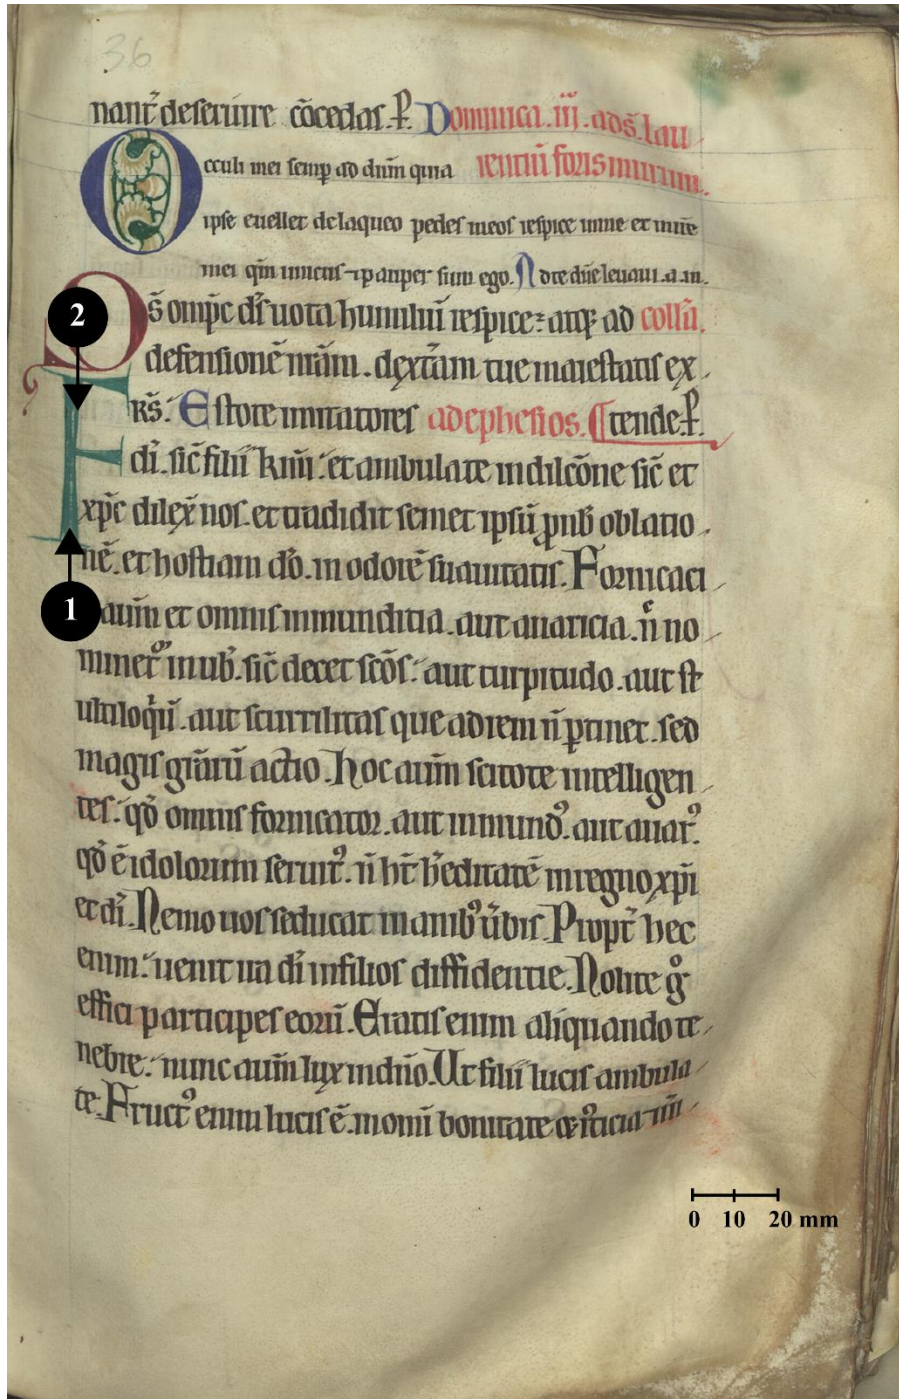 36
nant᷑ deseruire cōcedas. P̲. Dominica .iij. ad s̄. lau
Occuli mei semp̲ ad dn̄m quia rentiū foris murum.
ipse euellet de laqueo pedes meos respice in me et mis̄e
mei qm̄ unicus ⁊ pauper sum ego. Ad te dn̄e leuaui. a. m.
Ds̄ omp̄c ds̄ uota humiliū respice: atq; ad collā.
2
defensionē nr̄am. dext̄am tue maiestatis ex
Frs̄. Estote imitatores ad ephesios. ¶ tende. P̲.
di. sic̄ filii kmī. et ambulate in dilc̄one sic̄ et
xp̄c dilex̄ nos. et tradidit semet ipsū p̲ nob̄ oblatio
nē. et hostiam dō. in odorē suauitatis. Fornicaci
1
aum̄ et omnis inmunditia. aut auaricia. n̄ no
minet᷑ in ub̄. sic̄ decet scōs. aut turpitudo. aut st
ultiloqiū. aut scurrilitas que ad rem n̄ p̲tinet. sed
magis gr̄arū actio. Hoc aum̄ scitote intelligen
tes. qd̄ omnis fornicator. aut inmundꝰ. aut auarꝰ.
qd̄ ē idolorum seruitꝰ. n̄ ht̄ h̄editatē in regno xp̄i
et di̅. Nemo uos seducat inanibꝰ ūbis. Propt̄ hec
enim. uenit ira di̅ in filios diffidentie. Nolite gͦ
effici participes eorū. Eratis enim aliquando te
nebre. nunc aum̄ lux in dn̄o. Ut filii lucis ambula
te. Fructꝰ enim lucis ē. in omī bonitate et iusticia
0 10 20 mm